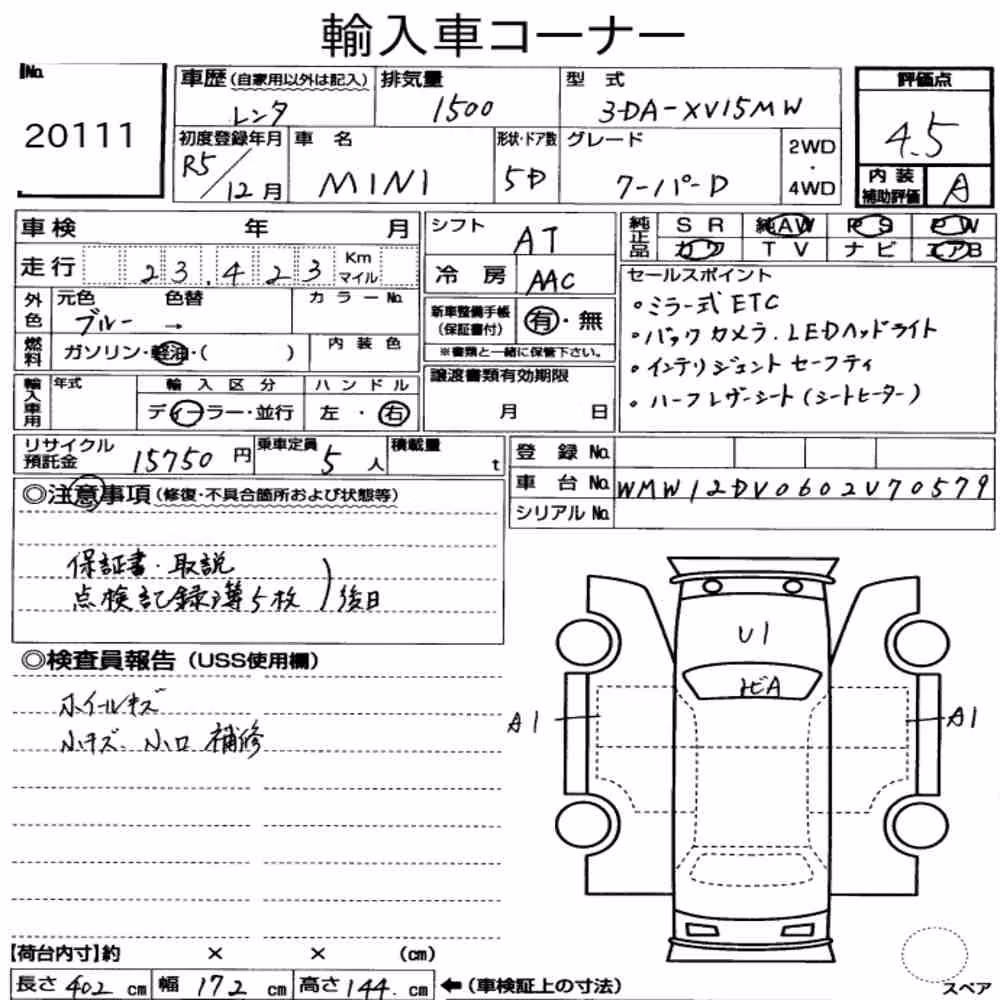 輸入車コーナー
No. 20111
車歴(自家用以外は記入) レンタ
排気量 1500
型式 3DA-XV15MW
評価点 4.5
初度登録年月 R5/12月
車名 MINI
形状・ドア数 5D
グレード クーパーD
2WD・4WD
内装補助評価 A
車検 年 月
走行 23.423 Km マイル
シフト AT
冷房 AAC
純正品 SR 純AW PS PW
カワ TV ナビ エアB
外色 元色 ブルー 色替 → カラーNo.
燃料 ガソリン・軽油・( ) 内装色
新車整備手帳(保証書付) 有・無
※書類と一緒に保管下さい。
セールスポイント
・ミラー式ETC
・バックカメラ.LEDヘッドライト
・インテリジェントセーフティ
・ハーフレザーシート(シートヒーター)
輸入車用 年式 輸入区分 ディーラー・並行 ハンドル 左・右
譲渡書類有効期限 月 日
リサイクル預託金 15750円
乗車定員 5人
積載量 t
登録No.
車台No. WMW12DV0602V70579
シリアルNo.
◎注意事項(修復・不具合箇所および状態等)
保証書・取説
点検記録簿5枚 )後日
◎検査員報告(USS使用欄)
ホイールキズ
小キズ 小凹 補修
U1
トビA
A1
A1
【荷台内寸】約 × × (cm)
長さ 402 cm 幅 172 cm 高さ 144. cm ←(車検証上の寸法)
スペア